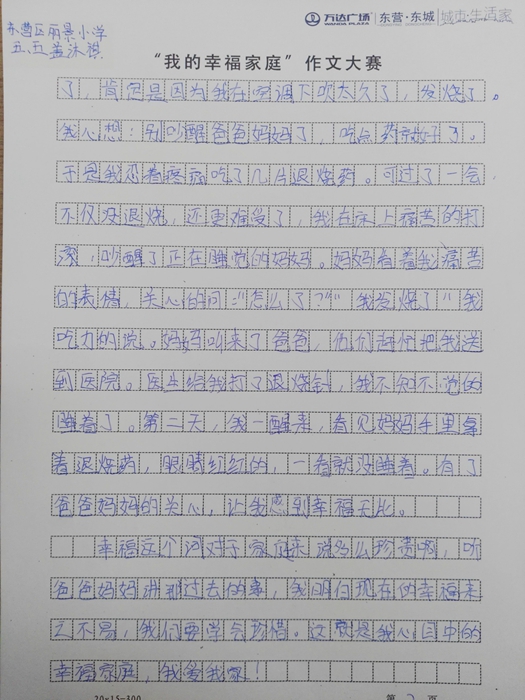 万达广场 WANDA PLAZA 东营·东城 城市·生活家
东营区丽景小学
五.五盖沐祺
“我的幸福家庭”作文大赛
了，肯定是因为我在空调下吹太久了，发烧了。
我心想：别吵醒爸爸妈妈了，吃点药就好了。
于是我忍着疼痛吃了几片退烧药。可过了一会
不仅没退烧，还更难受了，我在床上痛苦的打
滚，吵醒了正在睡觉的妈妈。妈妈看着我痛苦
的表情，关心的问：“怎么了？”“我发烧了”我
吃力的说。妈妈叫来了爸爸，他们赶忙把我送
到医院。医生给我打了退烧针，我不知不觉的
睡着了。第二天，我一醒来，看见妈妈手里拿
着退烧药，眼睛红红的，一看就没睡着。有了
爸爸妈妈的关心，让我感到幸福无比。
幸福这个词对于家庭来说多么珍贵啊，听
爸爸妈妈讲那过去的事，我明白现在的幸福来
之不易，我们要学会珍惜。这就是我心目中的
幸福家庭，我爱我家！
20×15=300 第 2 页